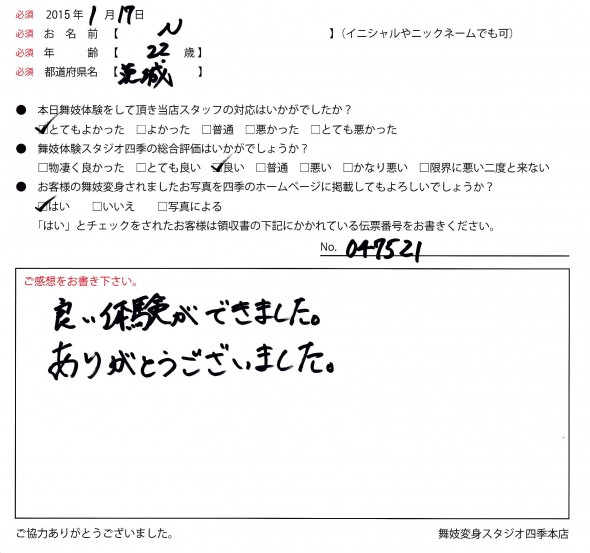 必須 2015年1月17日
必須 お名前【 N 】(イニシャルやニックネームでも可)
必須 年齢【 22 歳】
必須 都道府県名【茨城 】
● 本日舞妓体験をして頂き当店スタッフの対応はいかがでしたか?
☑とてもよかった □よかった □普通 □悪かった □とても悪かった
● 舞妓体験スタジオ四季の総合評価はいかがでしょうか?
□物凄く良かった □とても良い ☑良い □普通 □悪い □かなり悪い □限界に悪い二度と来ない
● お客様の舞妓変身されましたお写真を四季のホームページに掲載してもよろしいでしょうか?
☑はい □いいえ □写真による
「はい」とチェックをされたお客様は領収書の下記にかかれている伝票番号をお書きください。
No. 047521
ご感想をお書き下さい。
良い体験ができました。
ありがとうございました。
ご協力ありがとうございました。 舞妓変身スタジオ四季本店